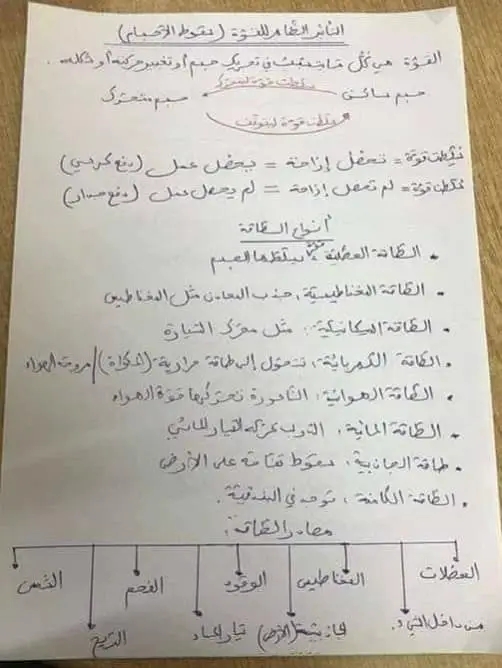 التأثير الظاهر للقوة (سقوط الأجسام)
القوة هي كل ما يتسبب في تحريك جسم أو تغيير حركته أو شكله.
جسم ساكن سلطت قوة ليتحرك جسم متحرك
سلطت قوة ليتوقف
سلطت قوة = تحصل إزاحة = يحصل عمل (دفع كرسي)
سلطت قوة = لم تحصل إزاحة = لم يحصل عمل (دفع جدار)
أنواع الطاقة
• الطاقة العضلية يسلطها الجسم
• الطاقة المغناطيسية، جذب المعادن مثل المغناطيس
• الطاقة الميكانيكية: مثل محرك السيارة
• الطاقة الكهربائية، تتحول إلى طاقة حرارية (المكواة) / مروحة الهواء
• الطاقة الهوائية: الناعورة تحركها قوة الهواء
• الطاقة المائية، التيار المائي
• طاقة الجاذبية، سقوط تفاحة على الأرض
• الطاقة الكامنة، توجد في البندقية.
مصادر الطاقة:
العضلات المغناطيس الوقود الفحم الشمس
من داخل الشيء. الجاذبية (الأرض) تيار الماء الريح